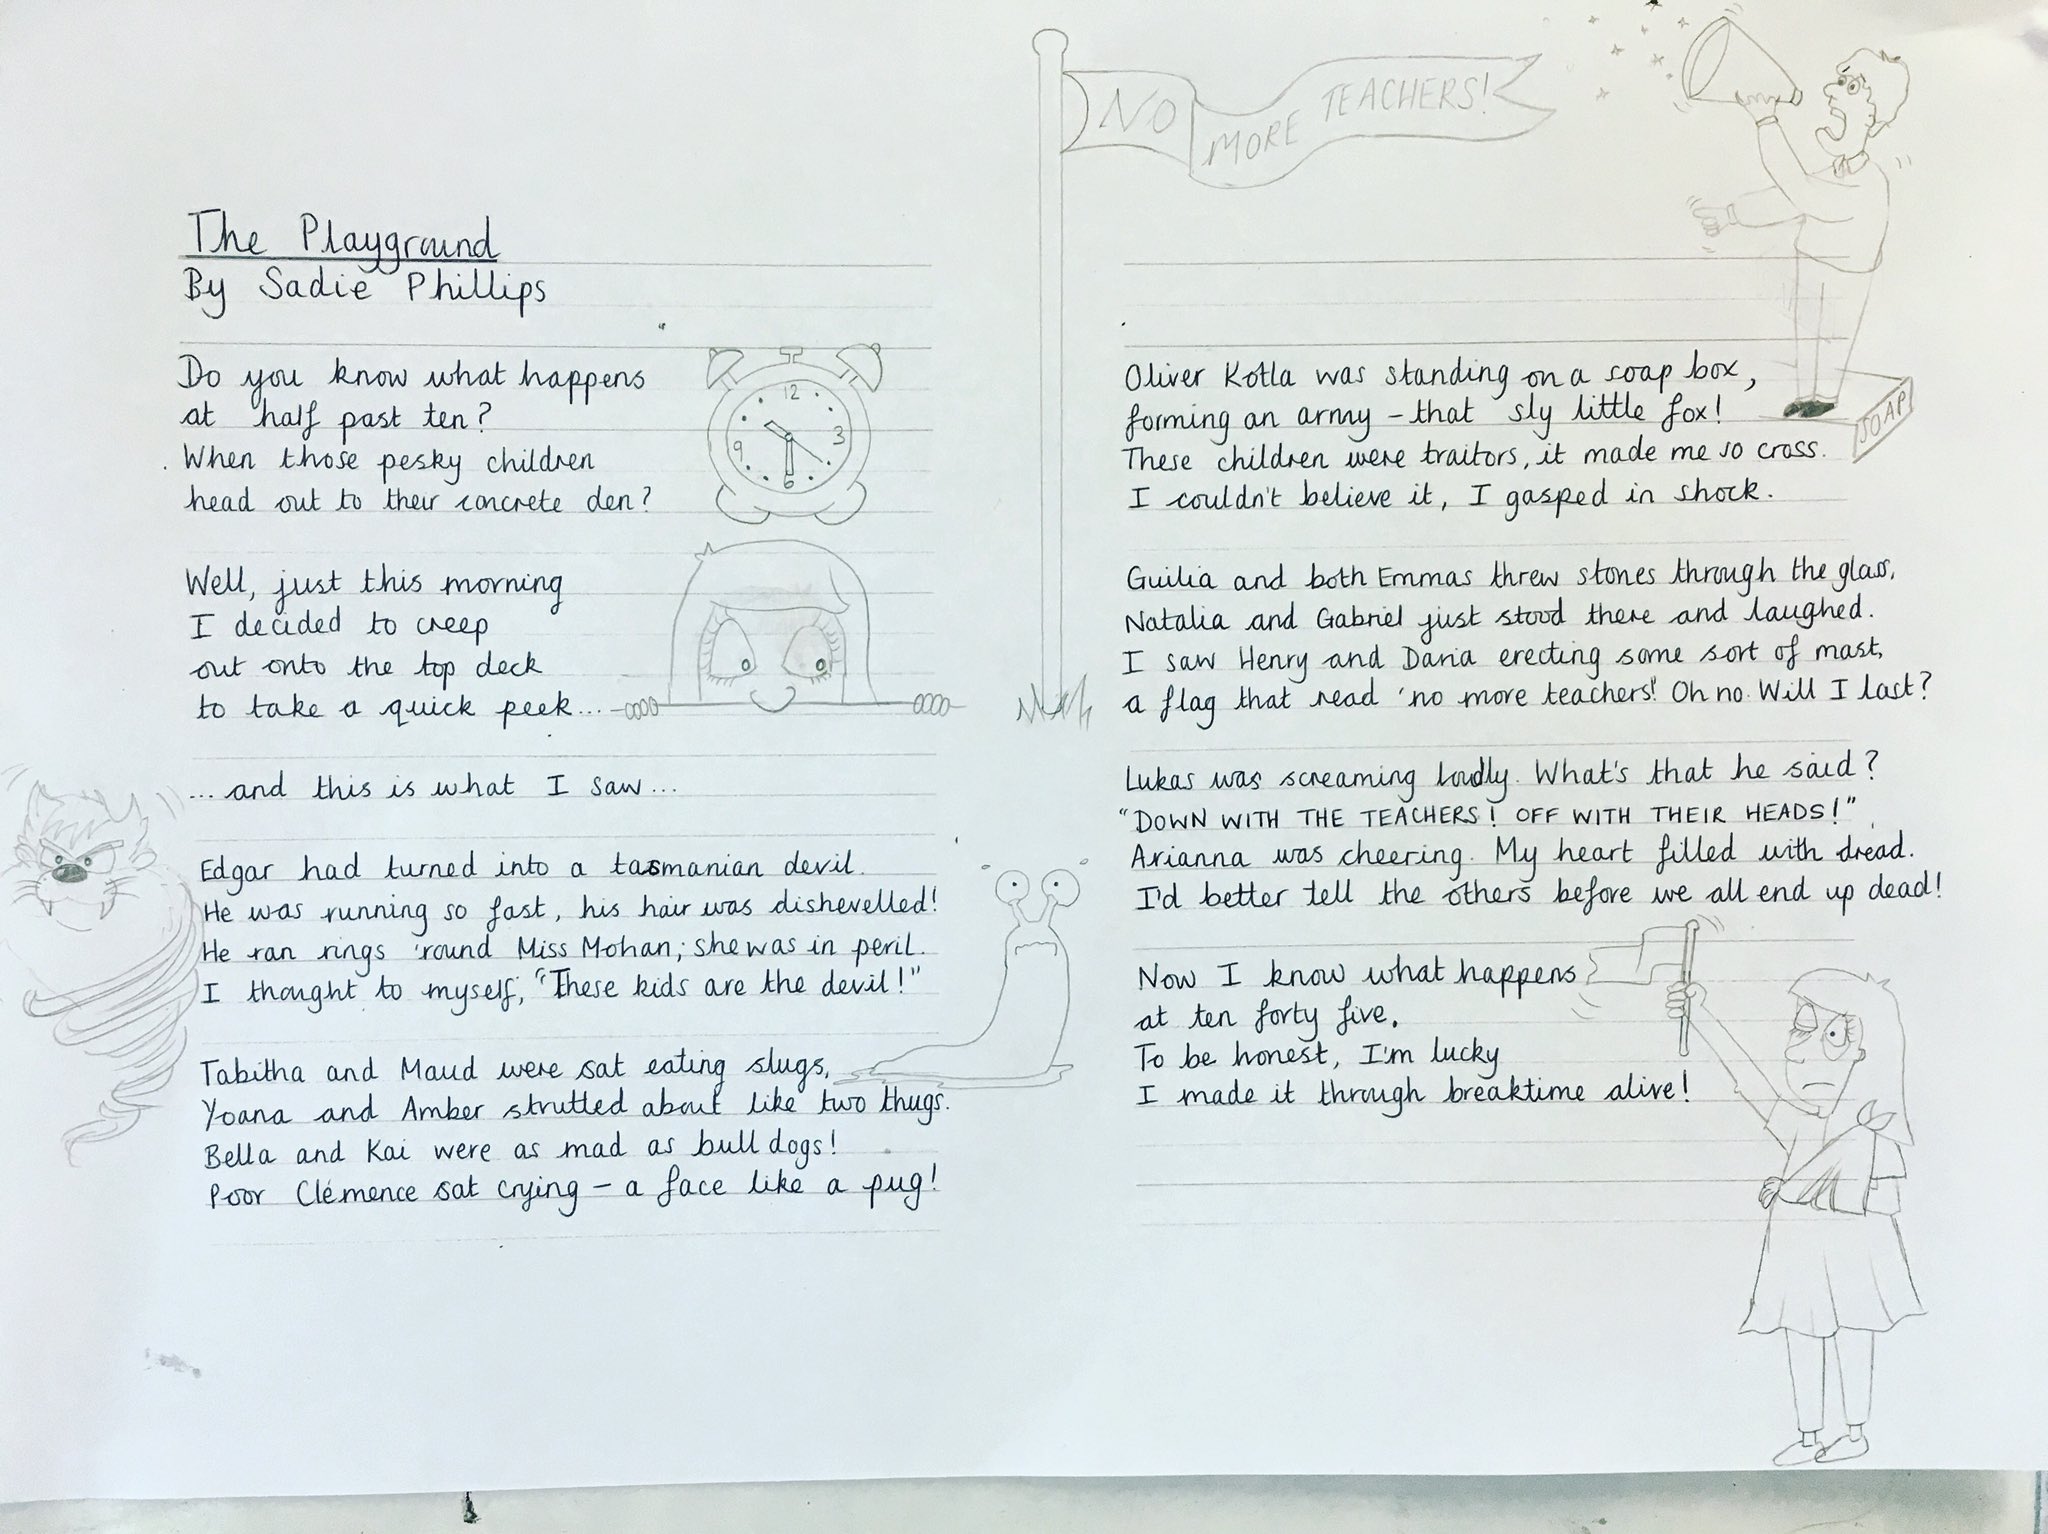 The Playground
By Sadie Phillips
Do you know what happens
at half past ten?
When those pesky children
head out to their concrete den?
12
3
6
9
Well, just this morning
I decided to creep
out onto the top deck
to take a quick peek...
...and this is what I saw...
Edgar had turned into a tasmanian devil.
He was running so fast, his hair was dishevelled!
He ran rings 'round Miss Mohan; she was in peril.
I thought to myself, "These kids are the devil!"
Tabitha and Maud were sat eating slugs,
Yoana and Amber strutted about like two thugs.
Bella and Kai were as mad as bull dogs!
Poor Clémence sat crying – a face like a pug!
NO MORE TEACHERS!
SOAP
Oliver Kotla was standing on a soap box,
forming an army – that sly little fox!
These children were traitors, it made me so cross.
I couldn't believe it, I gasped in shock.
Guilia and both Emmas threw stones through the glass,
Natalia and Gabriel just stood there and laughed.
I saw Henry and Daria erecting some sort of mast,
a flag that read 'no more teachers!' Oh no. Will I last?
Lukas was screaming loudly. What's that he said?
"DOWN WITH THE TEACHERS! OFF WITH THEIR HEADS!"
Arianna was cheering. My heart filled with dread.
I'd better tell the others before we all end up dead!
Now I know what happens
at ten forty five.
To be honest, I'm lucky
I made it through breaktime alive!